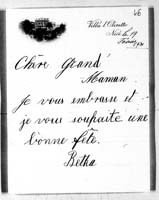 66
Villa l'Olivette
Nice le 19
Février 1921
Chère Grand'
Maman
Je vous embrasse et
je vous souhaite une
bonne fête.
Betka